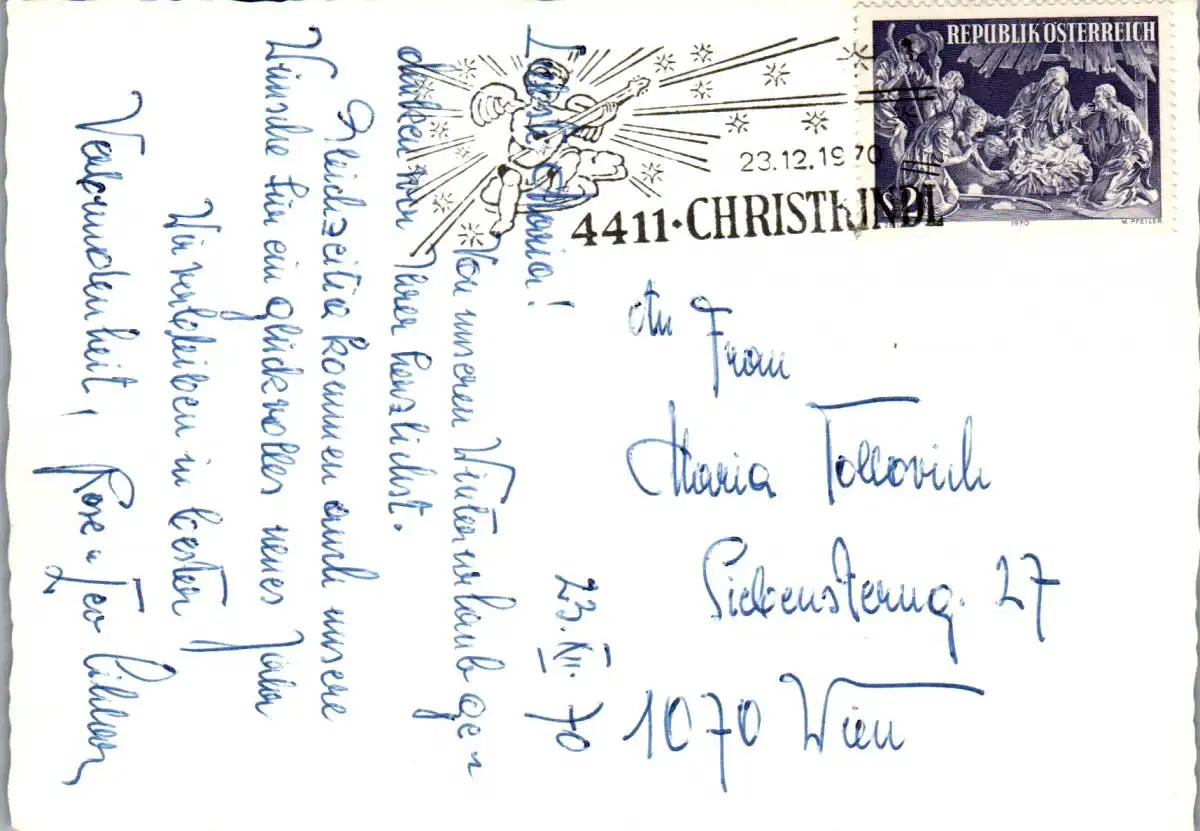 REPUBLIK ÖSTERREICH
1970
W. PFEILER
23.12.1970
4411·CHRISTKINDL
Liebste Maria!
23. XII. 70
Von unseren Winterurlaub ge=
denken wir Ihrer herzlichst.
Gleichzeitig kommen auch unsere
Wünsche für ein glückvolles neues Jahr
Wir verbleiben in bester
Verbundenheit, Rose u
An Frau
Maria Tollovich
Siebensterng. 27
1070 Wien